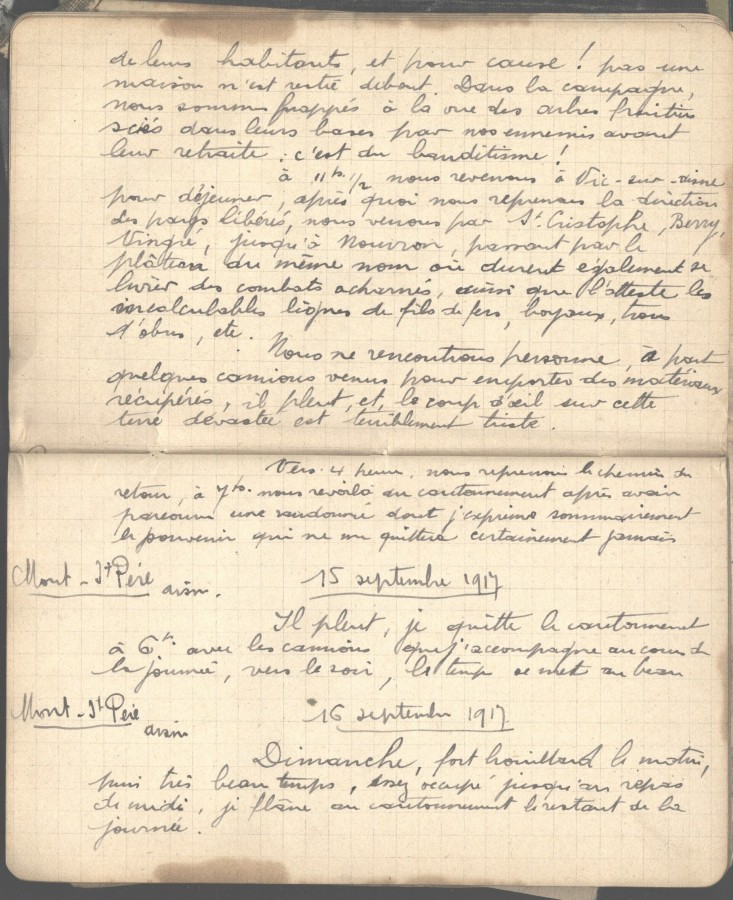 de leurs habitants, et pour cause ! pas une
maison n'est restée debout. Dans la campagne,
nous sommes frappés à la vue des arbres fruitiers
sciés dans leurs bases par nos ennemis avant
leur retraite : c'est du banditisme !
à 11h 1/2 nous revenons à Vic-sur-Aisne
pour déjeuner, après quoi nous reprenons la direction
des pays libérés, nous venons par St Cristophe, Berry,
Vingré, jusqu'à Nouvron, passant par le
plateau du même nom où durent également se
livrer des combats acharnés, ainsi que l'atteste les
incalculables lignes de fils de fers, boyaux, trous
d'obus, etc.
Nous ne rencontrons personne, à part
quelques camions venus pour emporter des matériaux
récupérés, il pleut, et, le coup d'œil sur cette
terre dévastée est terriblement triste.
Vers 4 heures, nous reprenons le chemin du
retour, à 7h. nous revoilà au cantonnement après avoir
parcouru une randonnée dont j'exprime sommairement
le souvenir qui ne me quittera certainement jamais
Mont-St Père aisne. 15 septembre 1917
Il pleut, je quitte le cantonnement
à 6h avec les camions que j'accompagne au cours de
la journée, vers le soir, le temps se met au beau
Mont-St Père aisne 16 septembre 1917
Dimanche, fort brouillard le matin,
puis très beau temps, assez occupé jusqu'au repas
de midi, je flâne au cantonnement le restant de la
journée.